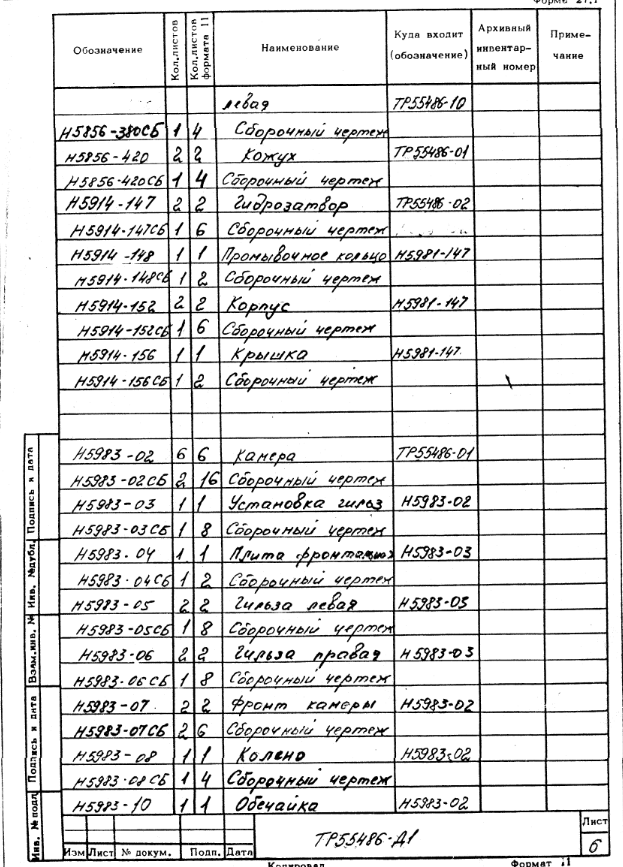 Форме 27.1
Обозначение Кол.листов Кол.листов формата 11 Наименование Куда входит (обозначение) Архивный инвентар-ный номер Приме-чание
левая ТР55486-10
Н5856-380СБ 1 4 Сборочный чертеж
Н5856-420 2 2 Кожух ТР55486-01
Н5856-420СБ 1 4 Сборочный чертеж
Н5914-147 2 2 Гидрозатвор ТР55486-02
Н5914-147СБ 1 6 Сборочный чертеж
Н5914-148 1 1 Промывочное кольцо Н5981-147
Н5914-148СБ 1 2 Сборочный чертеж
Н5914-152 2 2 Корпус Н5981-147
Н5914-152СБ 1 6 Сборочный чертеж
Н5914-156 1 1 Крышка Н5981-147
Н5914-156СБ 1 2 Сборочный чертеж
Н5983-02 6 6 Камера ТР55486-01
Н5983-02СБ 2 16 Сборочный чертеж
Н5983-03 1 1 Установка гильз Н5983-02
Н5983-03СБ 1 8 Сборочный чертеж
Н5983-04 1 1 Плита Н5983-03
Н5983-04СБ 1 2 Сборочный чертеж
Н5983-05 2 2 Гильза левая Н5983-03
Н5983-05СБ 1 8 Сборочный чертеж
Н5983-06 2 2 Гильза правая Н5983-03
Н5983-06СБ 1 8 Сборочный чертеж
Н5983-07 2 2 Фронт камеры Н5983-02
Н5983-07СБ 2 6 Сборочный чертеж
Н5983-08 1 1 Колено Н5983-02
Н5983-08СБ 1 4 Сборочный чертеж
Н5983-10 1 1 Обечайка Н5983-02
Инв. № подл
Подпись и дата
Взам.инв. №
Инв. №дубл.
Подпись и дата
ТР55486-Д1
Лист
6
Изм Лист № докум. Подп. Дата
Копировал Формат 11